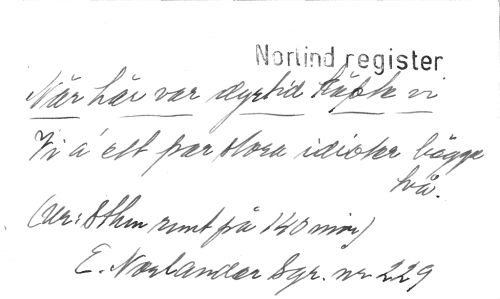 Norlind register
När här var dyrtid köpte vi
Vi ä' ett par stora idioter bägge
två.
(ur: Sthlm runt på 140 min)
E. Norlander Sgr. nr 229